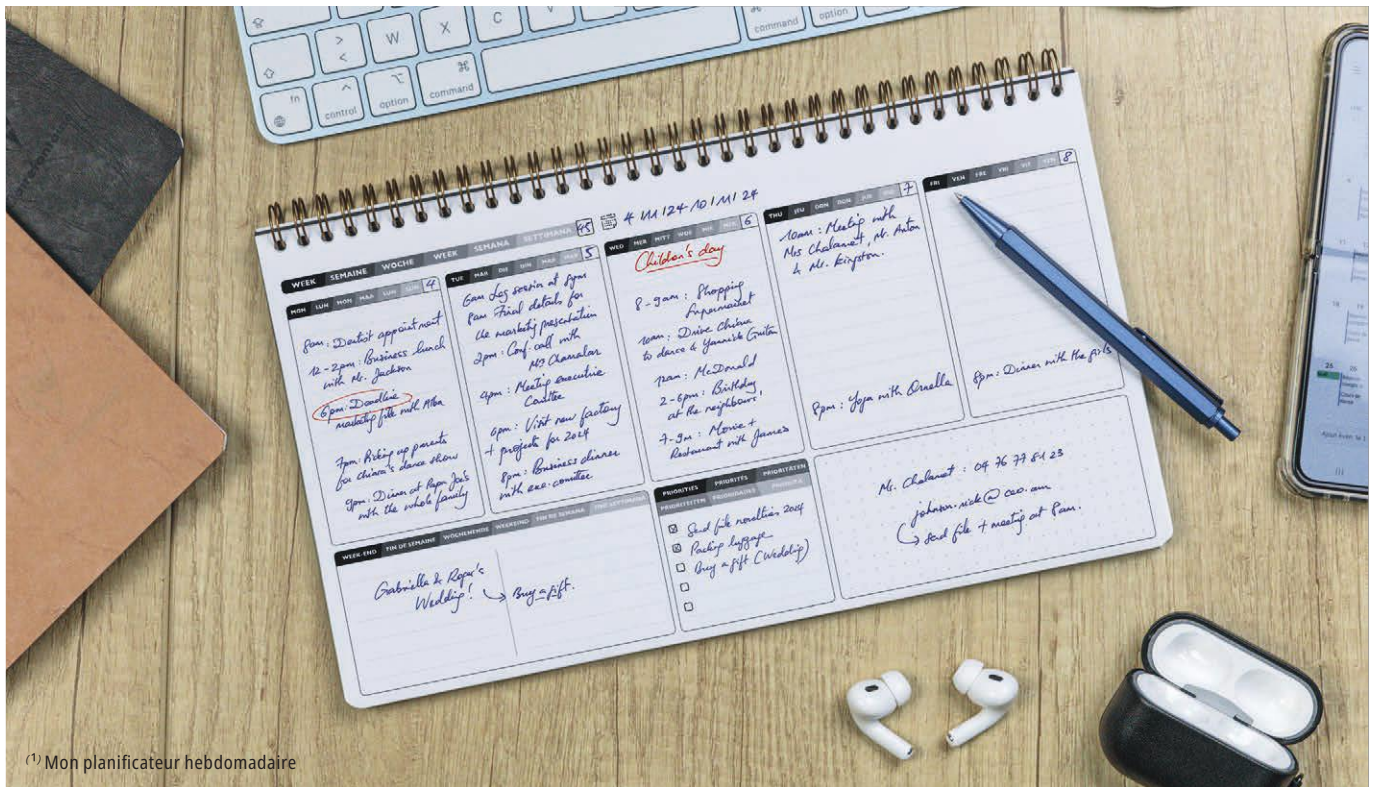 > W X C V ⌘ option
< command
fn ^ ⌥ ⌘
control option command
WEEK SEMAINE WOCHE WEEK SEMANA SETTIMANA 45
4/11/24-10/11/24
MON LUN MON MAA LUN 4
8am: Dentist appointment
12-2pm: Business lunch
with Mr. Jackson
6pm: Deadline
marketing file with
7pm: up parents
for chiara's dance show
9pm: Dinner at Papa Joe's
with the whole family
TUE MAR DIE DIN MAR MAR 5
6am Leg session at gym
8am Final details for
the marketing presentation
2pm: Conf. call with
4pm: Meeting executive
6pm: Visit new factory
+ projects for 2024
8pm: Business dinner
with exe. comittee
WED MER MITT WOE MIE MER 6
Children's day
8-9am: Shopping
Supermarket
10am: Drive
to dance & Guitar
12am: McDonald
2-6pm: Birthday
at the neighbours'
7-9m: Movie +
Restaurant with
THU JEU DON DON JUE 7
10am: Meeting with
Mrs Chalamet, Mr. Anton
& Mr. Kingston.
8pm: Yoga with Ornella
FRI VEN FRE VRI VIE VEN 8
8pm: Dinner with the girls
WEEK-END FIN DE SEMAINE WOCHENENDE WEEKEIND FIN DE SEMANA FINE SETTIMANA
Gabriella & Roger's
Wedding! Buy a gift.
PRIORITIES PRIORITÉS PRIORITÄTEN
PRIORITEITEN PRIORIDADES PRIORITÀ
Send file novelties 2024
Packing luggage
Buy a gift (Wedding)
Mr. Chalamet: 04 76 77 81 23
send file + meeting at 8am.
(1) Mon planificateur hebdomadaire